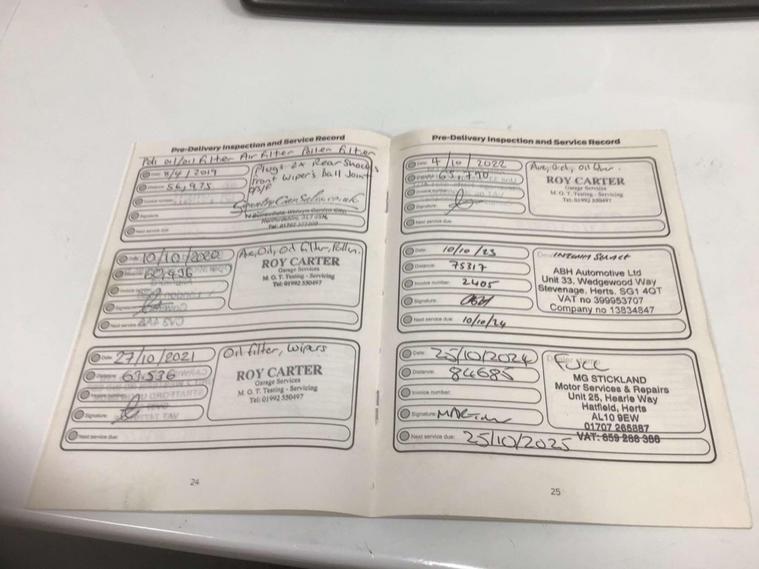 Pre-Delivery Inspection and Service Record
Pdi oil/oil filter Air filter Pollen filter
8/4/2019
Plugs 2x Rear Shocks
56,975
front wipers ball joint
Signature:
Next service due:
Date: 10/10/2020
Oil, Oil filter, Pollen.
60,936
ROY CARTER
Garage Services
M. O. T. Testing - Servicing
Tel: 01992 550497
Next service due:
Date: 27/10/2021
Oil filter, Wipers
63,536
ROY CARTER
Garage Services
M. O. T. Testing - Servicing
Tel: 01992 550497
Signature:
Next service due:
24
Pre-Delivery Inspection and Service Record
Date: 4/10/2022
oil filter.
65,790
ROY CARTER
Garage Services
M. O. T. Testing - Servicing
Tel: 01992 550497
Next service due:
Date: 10/10/23
Distance: 75317
ABH Automotive Ltd
Invoice number: 2405
Unit 33, Wedgewood Way
Stevenage, Herts. SG1 4QT
Signature:
VAT no 399953707
Company no 13834847
Next service due: 10/10/24
Date: 25/10/2024
FULL
Distance: 84685
MG STICKLAND
Motor Services & Repairs
Invoice number:
Unit 25, Hearle Way
Hatfield, Herts
Signature:
AL10 9EW
01707 265887
VAT: 659 266 366
Next service due: 25/10/2025
25